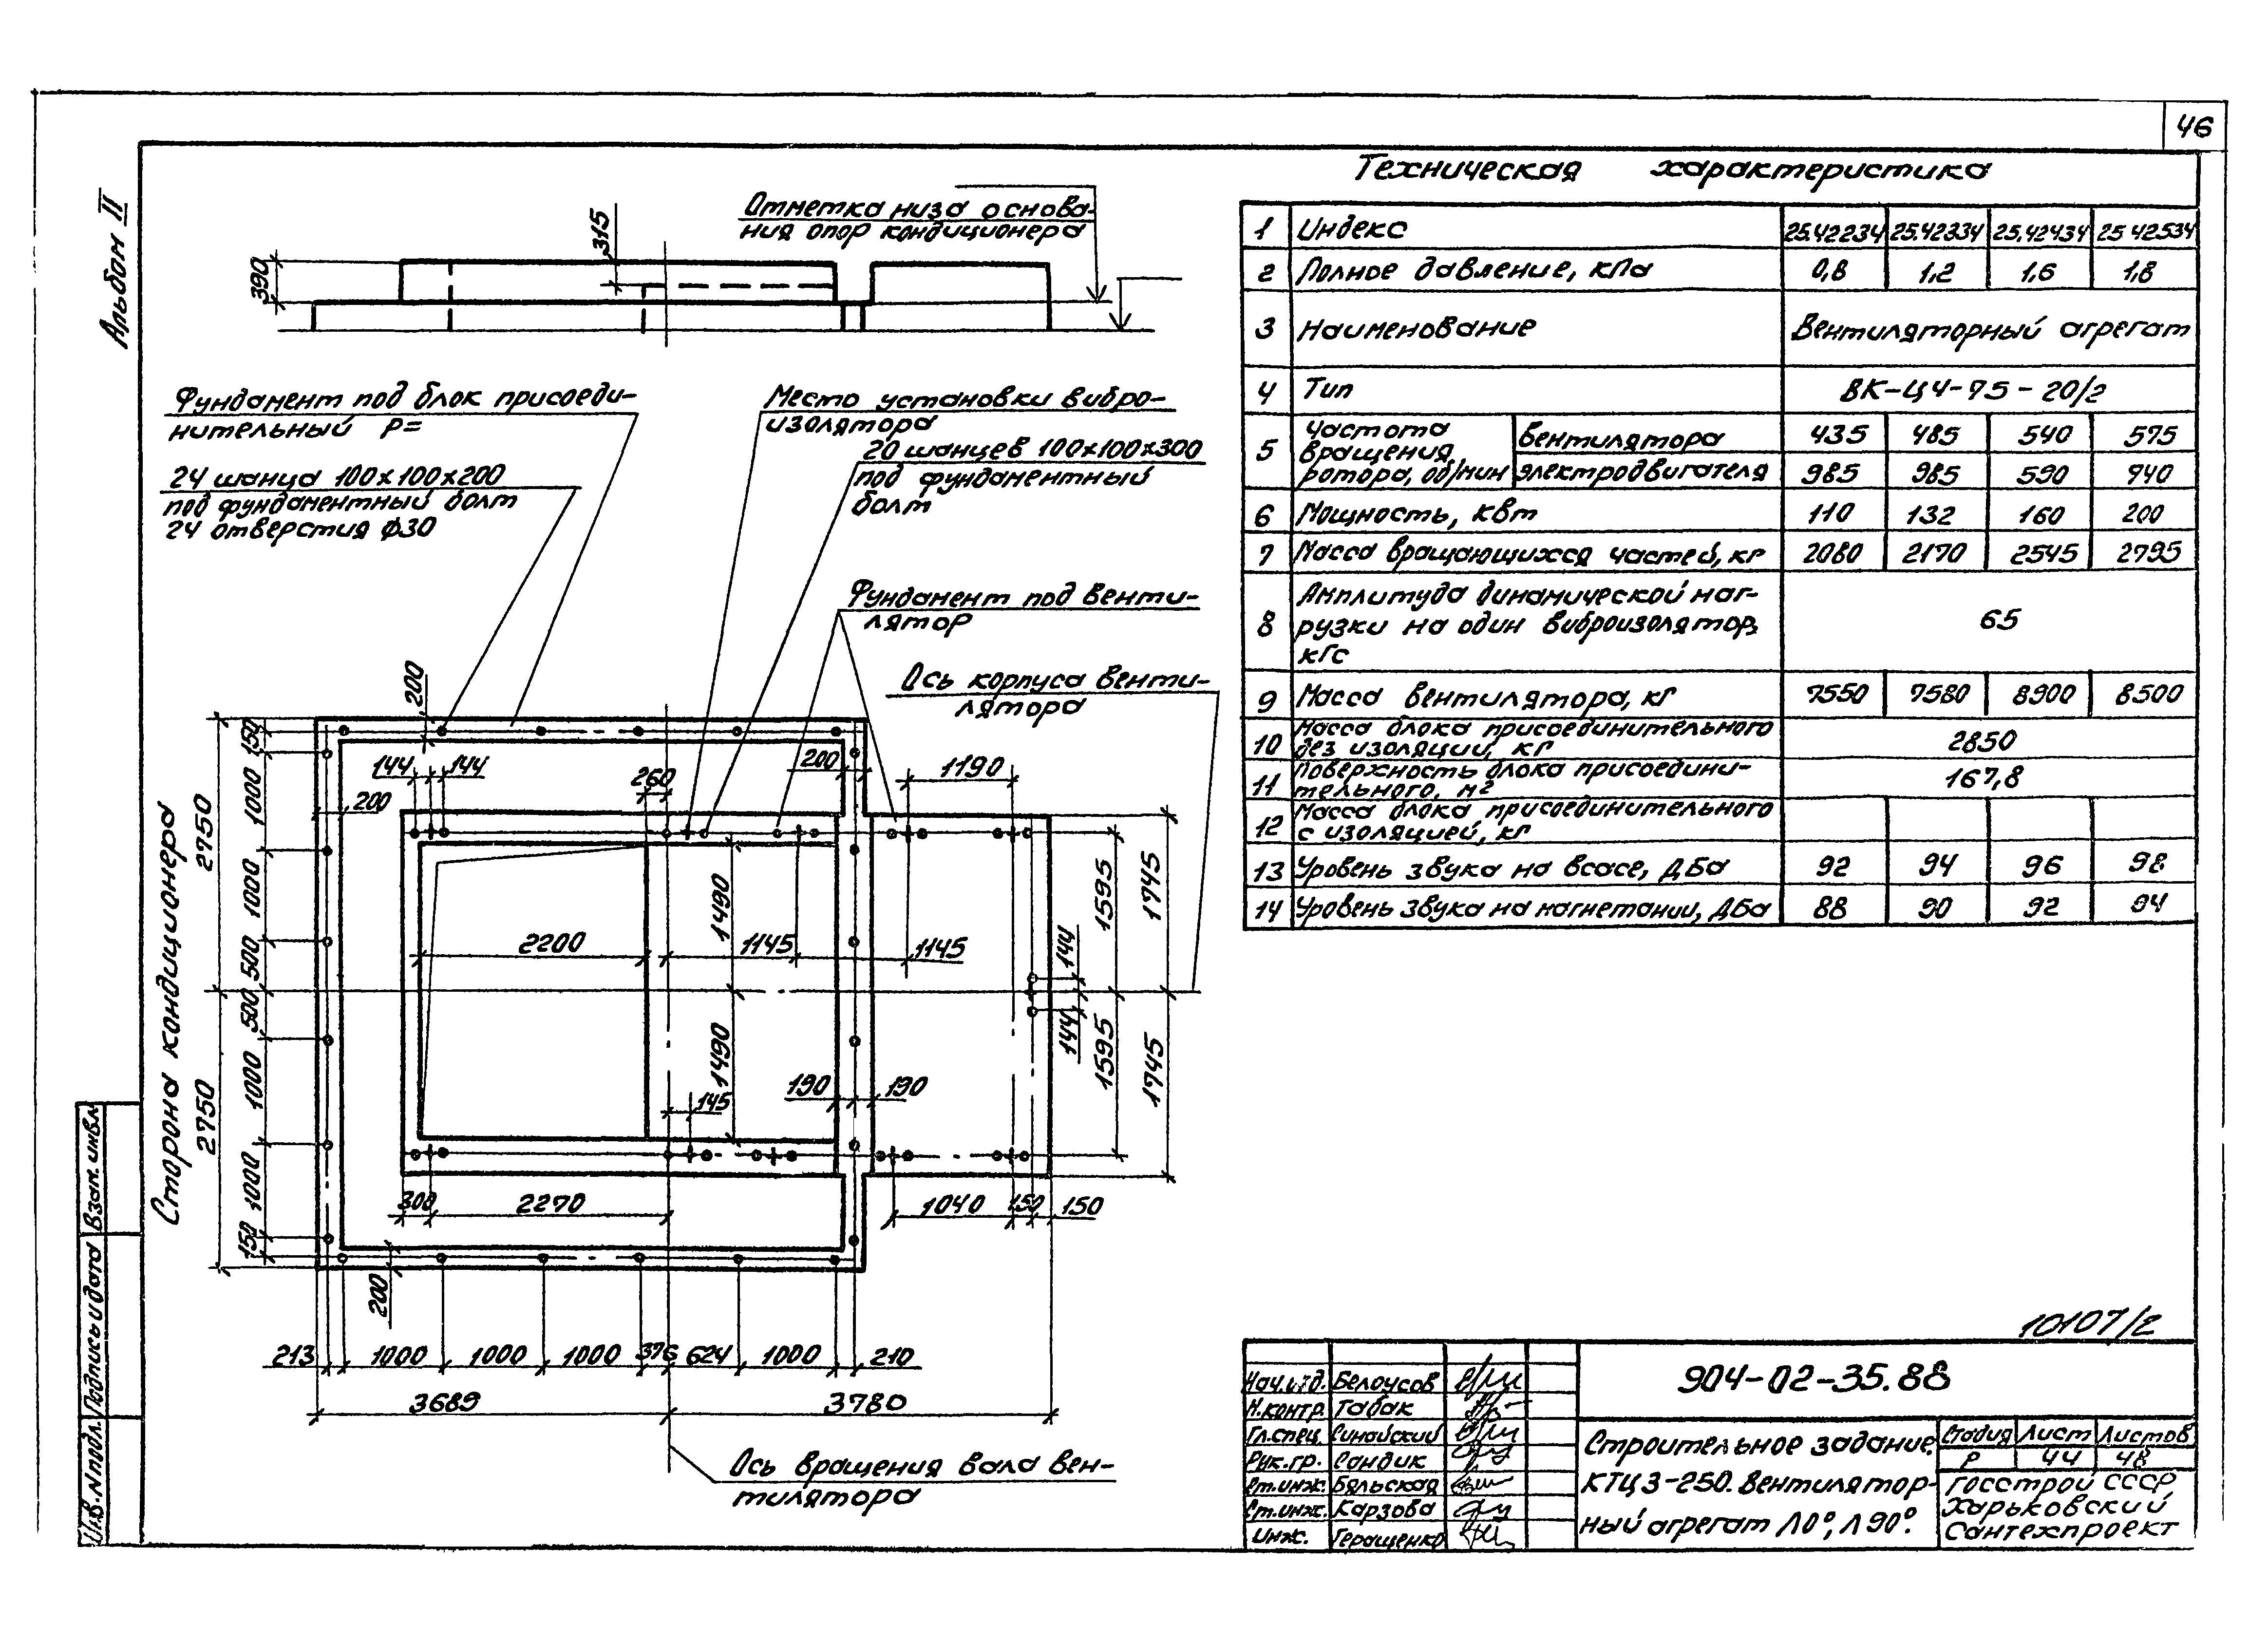 46
Альбом II
Техническая характеристика
Отметка низа основа-
ния опор кондиционера
315
390
Фундамент под блок присоеди-
нительный Р=
24 шанца 100х100х200
под фундаментный болт
24 отверстия ф30
Место установки вибро-
изолятора
20 шанцев 100х100х300
под фундаментный
болт
Фундамент под венти-
лятор
Ось корпуса венти-
лятора
Сторона кондиционера
200
144 144
260
200
1190
200
2750
2750
150
1000
1000
500
500
1000
1000
150
2200
1145
1145
1490
1490
1595
1595
1745
1745
144
144
190 190
145
300 2270
1040 150 150
200
213 1000 1000 1000 376 624 1000 210
3689 3780
Ось вращения вала вен-
тилятора
1 Индекс 25.42234 25.42334 25.42434 25 42534
2 Полное давление, кПа 0,8 1,2 1,6 1,8
3 Наименование Вентиляторный агрегат
4 Тип ВК-Ц4-75-20/2
5 Частота вращения, ротора, об/мин
вентилятора 435 485 540 575
электродвигателя 985 985 590 740
6 Мощность, квт 110 132 160 200
7 Масса вращающихся частей, кг 2080 2170 2545 2795
8 Амплитуда динамической наг-
рузки на один виброизолятор,
кГс
65
9 Масса вентилятора, кг 7550 7580 8900 8500
10 Масса блока присоединительного
без изоляции, кг
2850
11 Поверхность блока присоедини-
тельного, м2
167,8
12 Масса блока присоединительного
с изоляцией, кг
13 Уровень звука на всасе, дБа 92 94 96 98
14 Уровень звука на нагнетании, дБа 88 90 92 94
10107/2
904-02-35.88
Нач.отд. Белоусов
Н.контр. Табак
Гл.спец. Синайский
Рук.гр. Сандик
Ст.инж. Бяльская
Ст.инж. Карзова
Инж. Геращенко
Строительное задание.
КТЦ3-250. Вентилятор-
ный агрегат Л0°, Л90°.
Стадия Лист Листов
Р 44 48
Госстрой СССР
Харьковский
Сантехпроект
Взам. инв.№
Подпись и дата
Инв.№ подл.